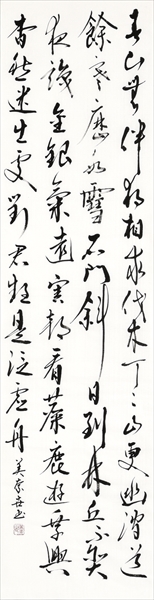 春山無伴独相求伐木丁々山更幽澗道
餘寒歴氷雪石門斜日到林丘不貪
夜識金銀気遠害朝看麋鹿遊乗興
杳然迷出処対君疑是泛虚舟